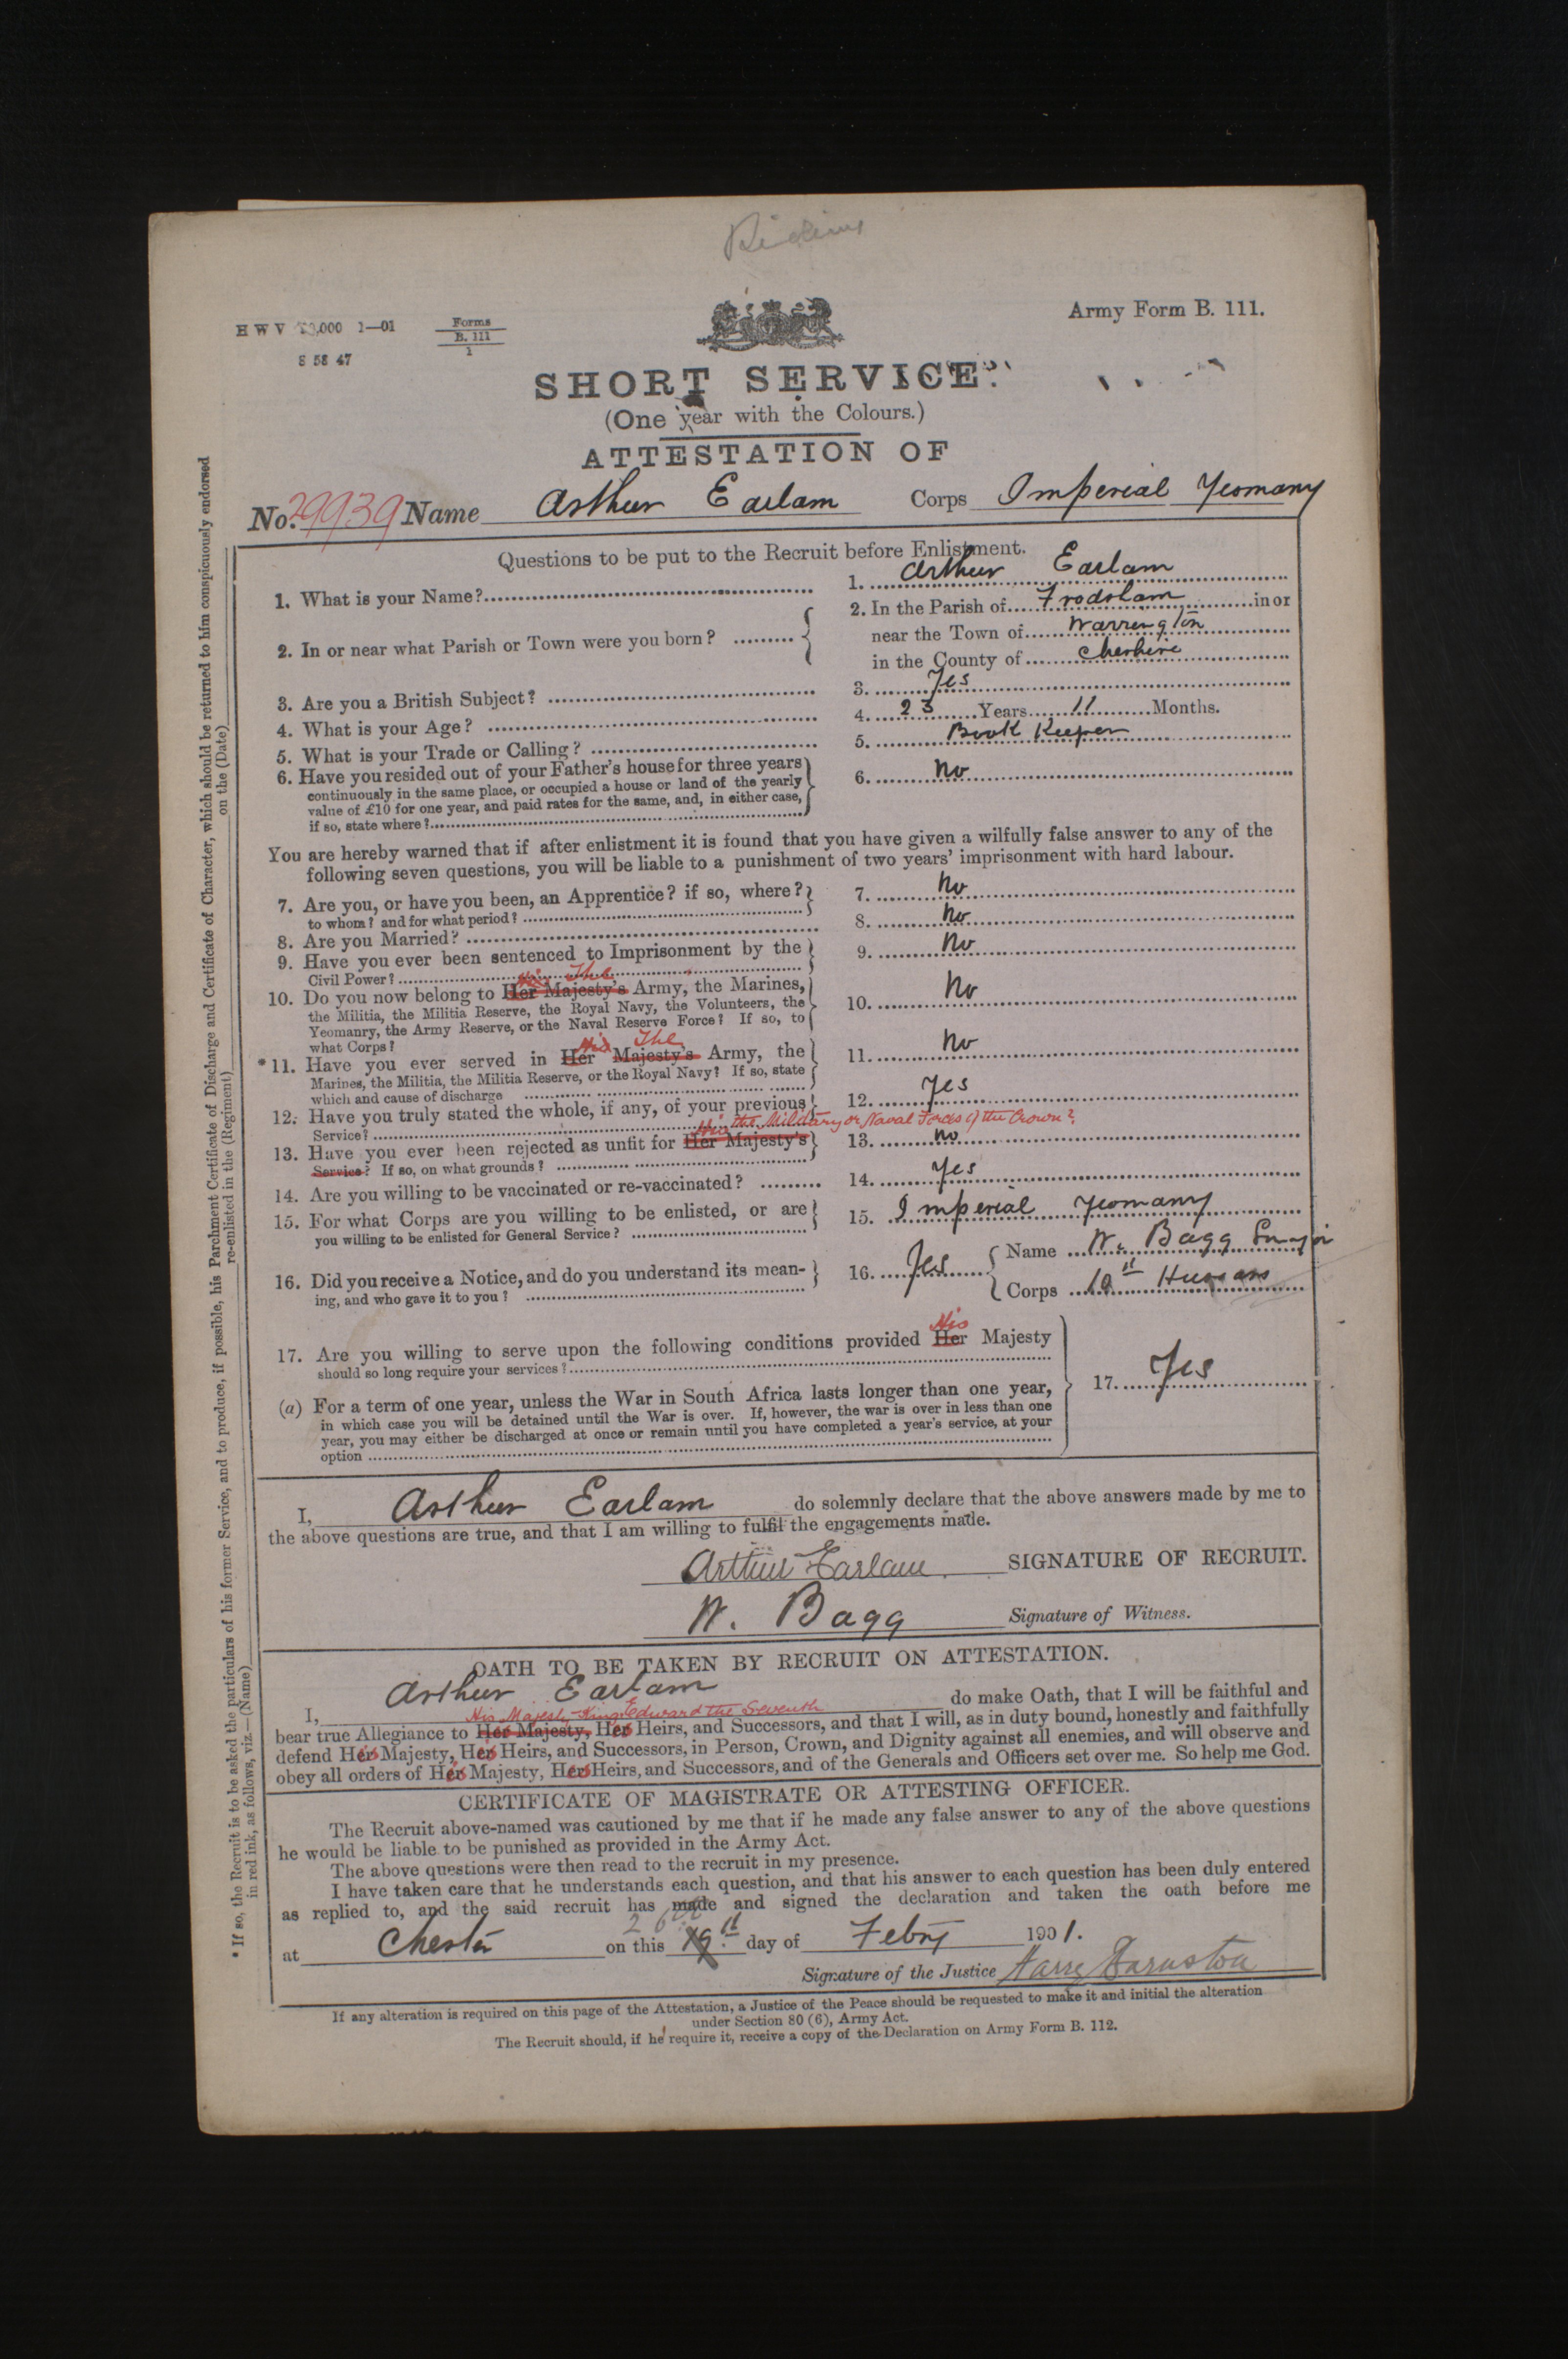 Army Form B. 111.
H W V 1—01 Forms
B. 111
1
S 58 47
SHORT SERVICE.
(One year with the Colours.)
ATTESTATION OF
No. 29939 Name Arthur Earlam Corps Imperial Yeomanry
Questions to be put to the Recruit before Enlistment.
1. What is your Name? 1. Arthur Earlam
2. In or near what Parish or Town were you born? 2. In the Parish of Frodsham in or
near the Town of Warrington
in the County of Cheshire
3. Are you a British Subject? 3. Yes
4. What is your Age? 4. 23 Years 11 Months.
5. What is your Trade or Calling? 5. Book Keeper
6. Have you resided out of your Father's house for three years 6. No
continuously in the same place, or occupied a house or land of the yearly
value of £10 for one year, and paid rates for the same, and, in either case,
if so, state where?
You are hereby warned that if after enlistment it is found that you have given a wilfully false answer to any of the
following seven questions, you will be liable to a punishment of two years' imprisonment with hard labour.
7. Are you, or have you been, an Apprentice? if so, where? 7. No
to whom? and for what period?
8. Are you Married? 8. No
9. Have you ever been sentenced to Imprisonment by the 9. No
Civil Power?
His The
10. Do you now belong to Her Majesty's Army, the Marines, 10. No
the Militia, the Militia Reserve, the Royal Navy, the Volunteers, the
Yeomanry, the Army Reserve, or the Naval Reserve Force? If so, to
what Corps?
His The
*11. Have you ever served in Her Majesty's Army, the 11. No
Marines, the Militia, the Militia Reserve, or the Royal Navy? If so, state
which and cause of discharge
12. Have you truly stated the whole, if any, of your previous 12. Yes
Service?
His the Military or Naval Forces of the Crown?
13. Have you ever been rejected as unfit for Her Majesty's 13. No
Service? If so, on what grounds?
14. Are you willing to be vaccinated or re-vaccinated? 14. Yes
15. For what Corps are you willing to be enlisted, or are 15. Imperial Yeomanry
you willing to be enlisted for General Service?
16. Did you receive a Notice, and do you understand its mean- 16. Yes Name W. Bagg
ing, and who gave it to you? Corps 10th Hussars
His
17. Are you willing to serve upon the following conditions provided Her Majesty
should so long require your services?
17. Yes
(a) For a term of one year, unless the War in South Africa lasts longer than one year,
in which case you will be detained until the War is over. If, however, the war is over in less than one
year, you may either be discharged at once or remain until you have completed a year's service, at your
option
I, Arthur Earlam do solemnly declare that the above answers made by me to
the above questions are true, and that I am willing to fulfil the engagements made.
Arthur Earlam. SIGNATURE OF RECRUIT.
W. Bagg Signature of Witness.
OATH TO BE TAKEN BY RECRUIT ON ATTESTATION.
I, Arthur Earlam do make Oath, that I will be faithful and
His Majesty King Edward the Seventh
bear true Allegiance to Her Majesty, His Heirs, and Successors, and that I will, as in duty bound, honestly and faithfully
defend His Majesty, His Heirs, and Successors, in Person, Crown, and Dignity against all enemies, and will observe and
obey all orders of His Majesty, His Heirs, and Successors, and of the Generals and Officers set over me. So help me God.
CERTIFICATE OF MAGISTRATE OR ATTESTING OFFICER.
The Recruit above-named was cautioned by me that if he made any false answer to any of the above questions
he would be liable to be punished as provided in the Army Act.
The above questions were then read to the recruit in my presence.
I have taken care that he understands each question, and that his answer to each question has been duly entered
as replied to, and the said recruit has made and signed the declaration and taken the oath before me
at Chester on this 26 19th day of Febry 1901.
Signature of the Justice Harry Barnston
If any alteration is required on this page of the Attestation, a Justice of the Peace should be requested to make it and initial the alteration
under Section 80 (6), Army Act.
The Recruit should, if he require it, receive a copy of the Declaration on Army Form B. 112.
* If so, the Recruit is to be asked the particulars of his former Service, and to produce, if possible, his Parchment Certificate of Discharge and Certificate of Character, which should be returned to him conspicuously endorsed
in red ink, as follows, viz.—(Name) re-enlisted in the (Regiment) on the (Date)